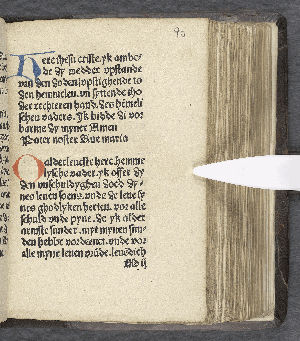 90
Here ihesu criste. yk anbe-
de dy wedder vpstande
van den doden. vpstighende to
den hemmelen. vn sittende tho
der rechteren hand. des hemeli
schen vaders. Yk bidde di vor
barme dy myner Amen
Pater noster Aue maria
O alderleueste here. hemme
lysche vader. yk offer dy
den vnschuldyghen doed dy-
nes leuen soens. vnde de leue sy
nes ghodlyken herten. vor alle
schuld vnde pyne. de yk alder
armste sunder. myt mynen sun-
den hebbe vordenet. vnde vor
alle myne leuen vrunde. leuendich